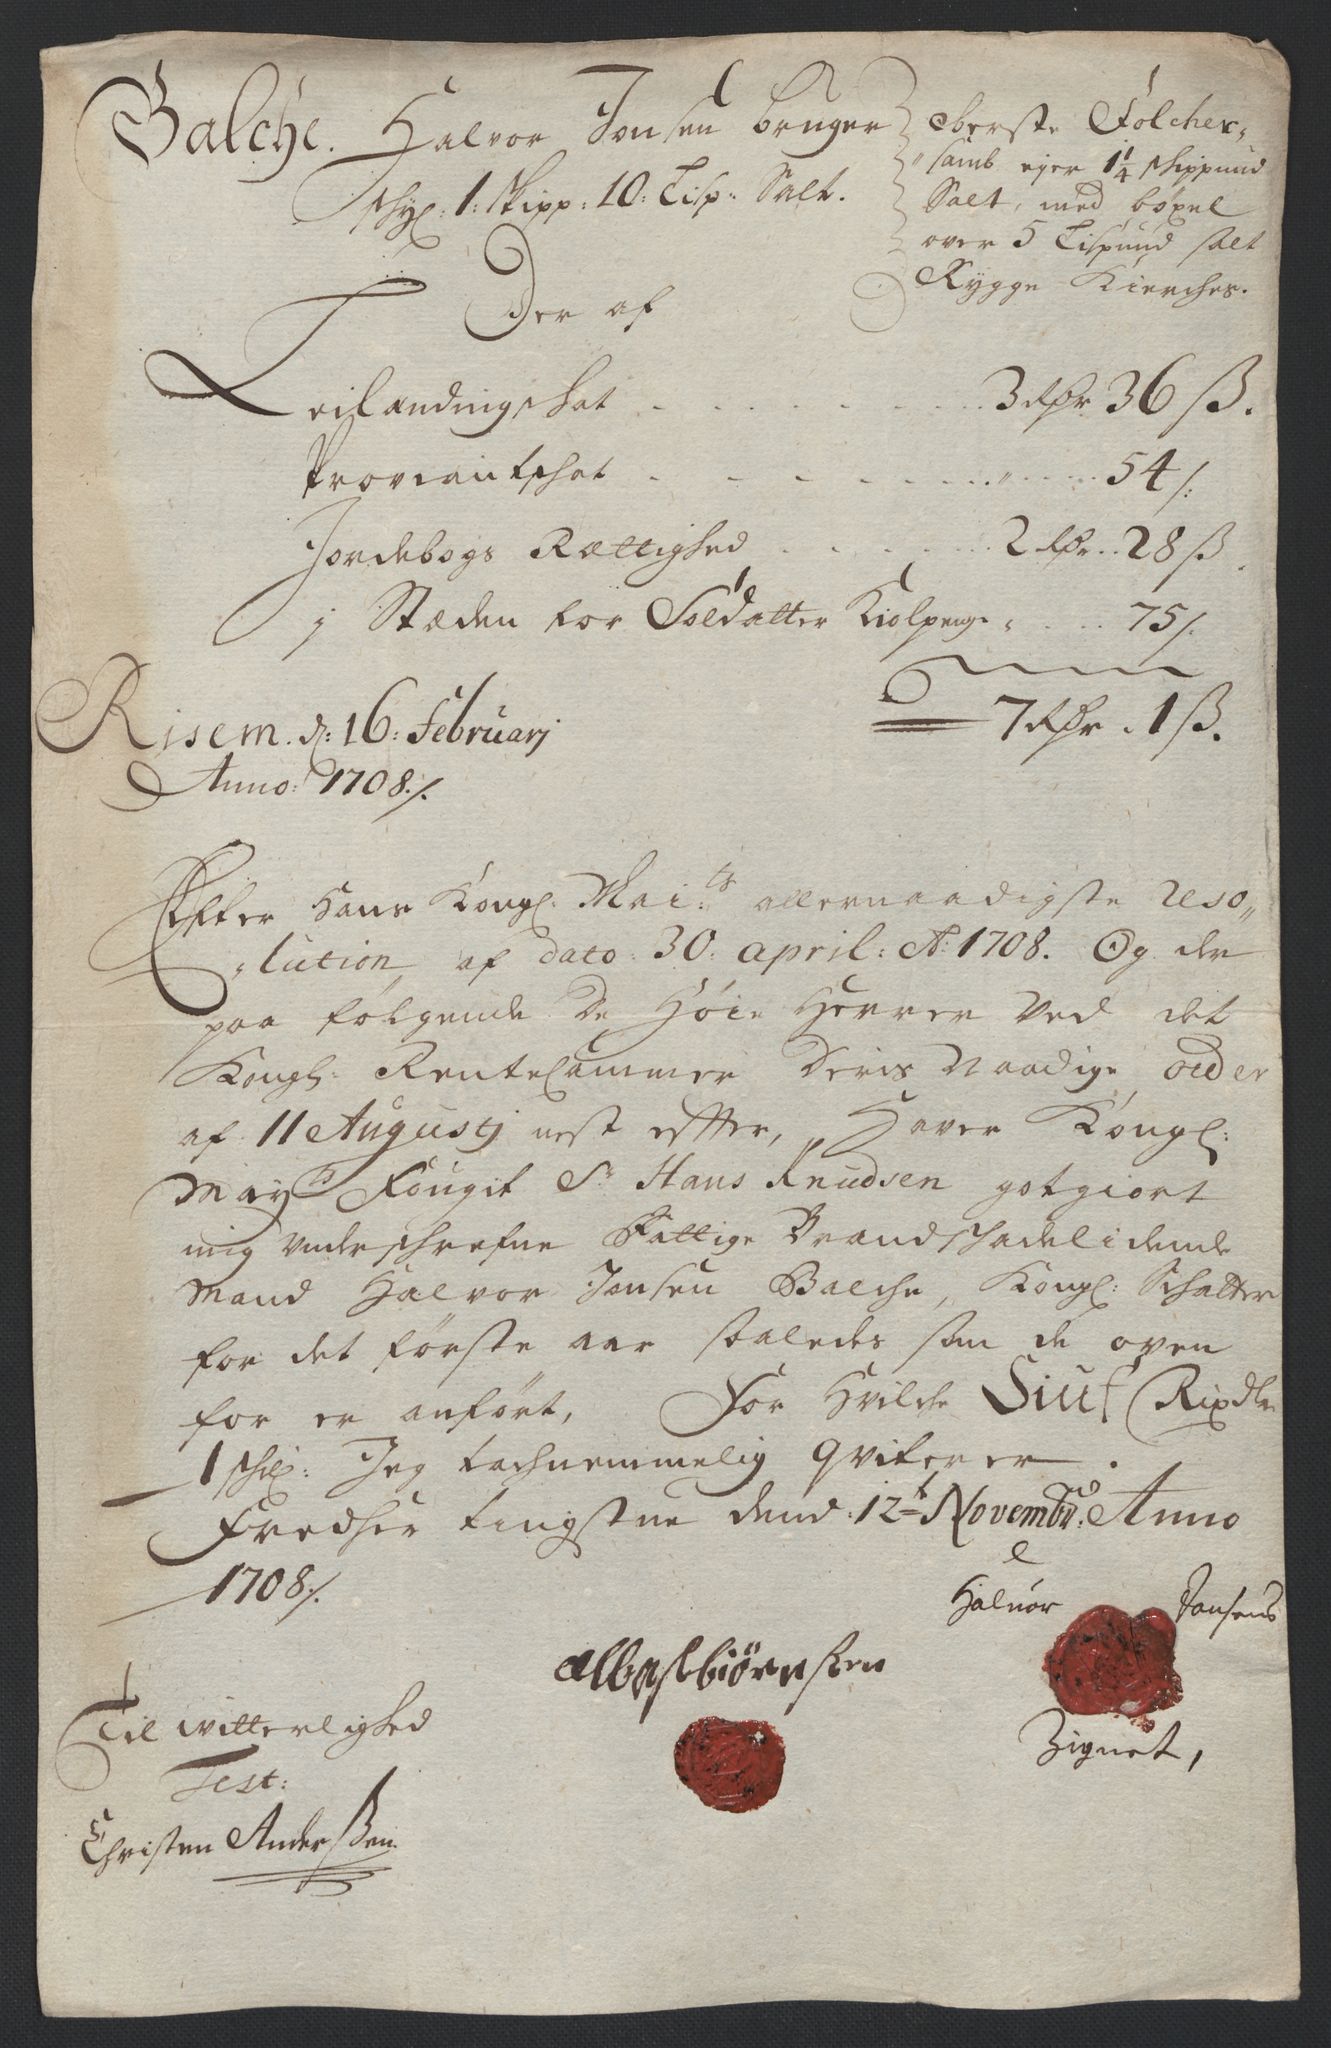 Balche. Halvor Jonsen bruger
schyl: 1: skipp: 10: Lisp: Salt.
oberste Folcher„
„samb ejer 1 1/4 schippund
Salt, med böxel
over 5 Lispund salt
Rygge Kierches.
Der af
Leilændingschat . . . . . . . . 3 Rdr 36 ß.
Proviantschat . . . . . . . „ . . . 54 /:
Jordebogs Rættighed . . . . . 2 Rdr . . 28 ß.
j Stæden for Soldatter Kiolpenge „ . . . 75 /.
7 Rdr . 1 ß.
Risem. d: 16: Februarj
Anno: 1708 ./.
Efter Hans Kongl: Mai:ts allernaadigste reso„
„lution, af dato 30: april: A: 1708. Og der
paa fölgende De Höie Herrer Ved det
Kongl: Rentecammer Deris Naadige order
af 11 Augustj nest effter, Haver Kongl:
May:ts Fougit Sr Hans Knudsen gotgiort
mig underschrefne Fattige Brandschadelidende
Mand Halvor Jonsen Balche, Kongl: Schatter
for det förste aar saaledes som de oven
for er anfört, For Hvilche Siuf Rixdlr
1 schil: Jeg tachnemmelig qviterer.
Fredhei tingstue dend: 12t Novembr: Anno
1708 ./.
Haluor Jonsens
Zignet,
Albasbiörnsen
Til witterlighed
Test:
Christen Anderßen.